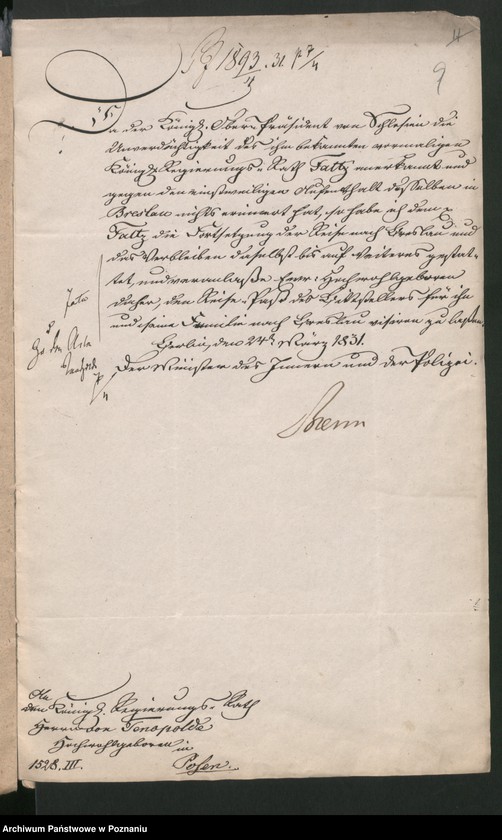 1893.31. p 7/4
4
9
Da der Königl. Ober-Präsident von Schlesien die
Unverdächtigkeit des ihm bekannten vormaligen
Königl. Regierungs-Rath Faltz anerkannt und
gegen den einstweiligen Aufenthalt desselben in
Breslau nichts erinnert hat, so habe ich dem p.
Faltz die Fortsetzung der Reise nach Breslau und
das Verbleiben daselbst bis auf Weiteres gestat-
tet, und veranlaße Ewr: Hochwohlgeboren
daher, den Reise-Paß des Bittstellers für ihn
und seine Familie nach Breslau visiren zu laßen.
Berlin, den 24ten März 1831.
Der Minister des Innern und der Polizei.
Zu den Acta
7/4
Brenn
An
den Königl. Regierungs-Rath
Herrn von
Hochwohlgeboren
in
1528. III.
Posen.
Archiwum Państwowe w Poznaniu